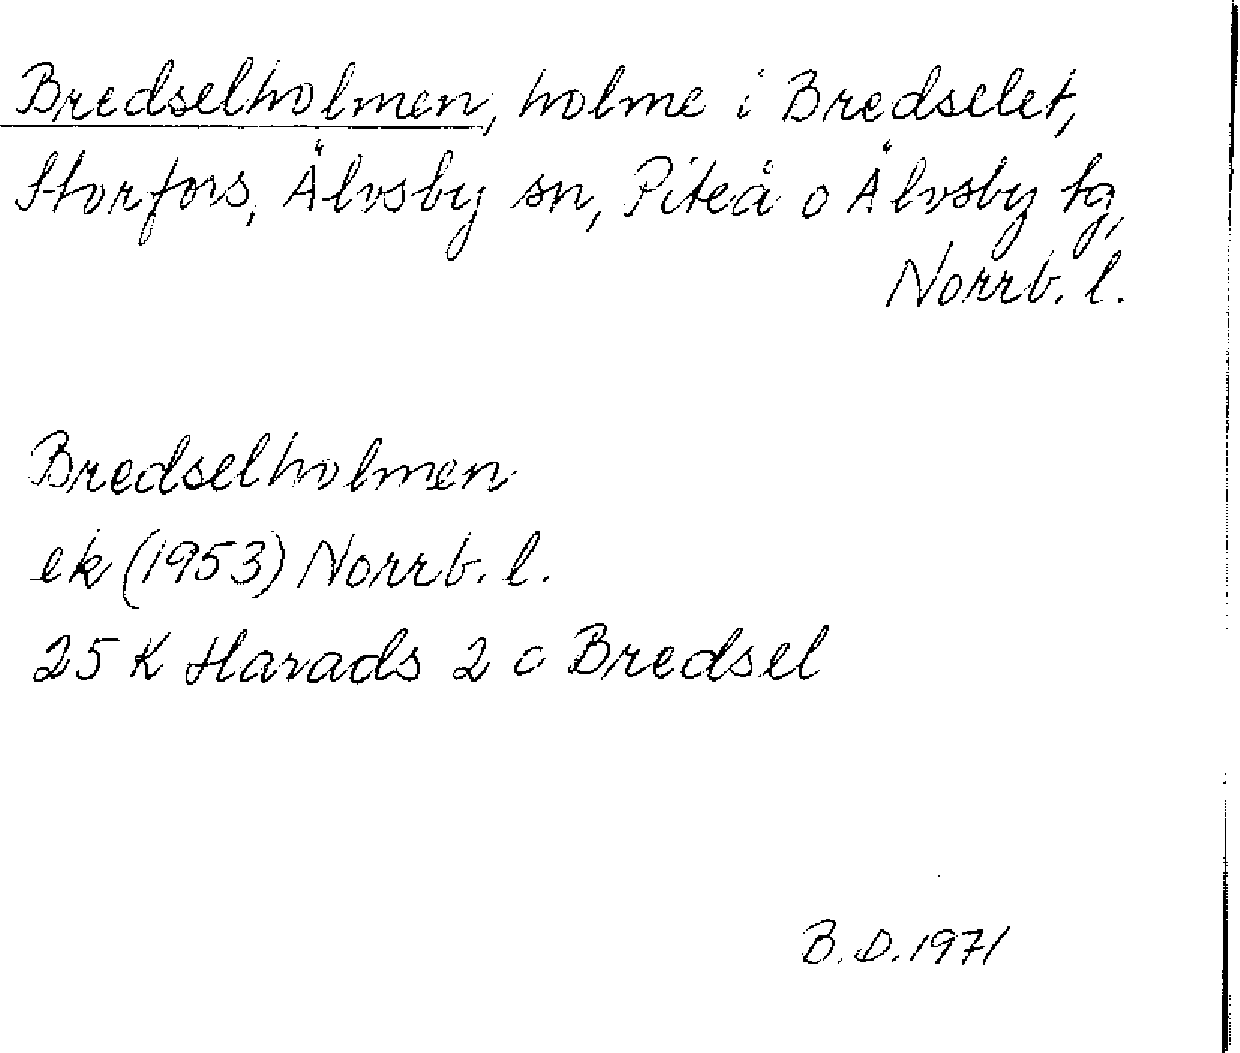 Bredselholmen, holme i Bredselet,
Storfors, Älvsby sn, Piteå o Älvsby tg,
Norrb. l.
Bredselholmen
ek (1953) Norrb. l.
25 K Harads 2 c Bredsel
B.D. 1971